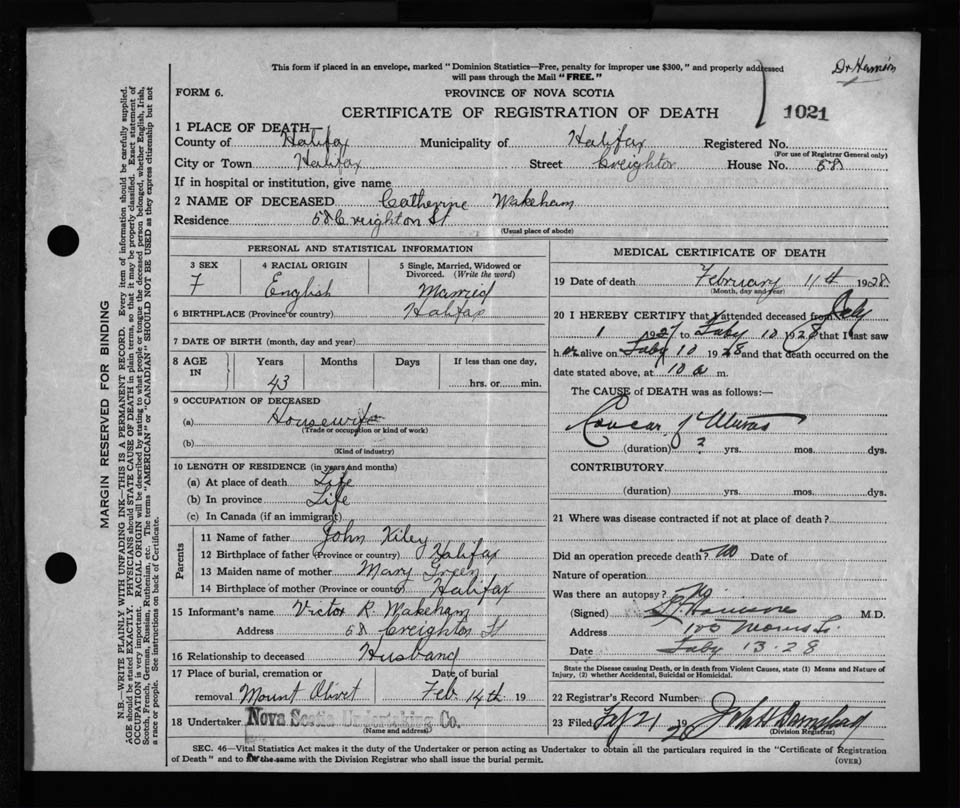 This form if placed in an envelope, marked "Dominion Statistics—Free, penalty for improper use $300," and properly addressed
will pass through the Mail "FREE."
Dr Harrison
FORM 6.
PROVINCE OF NOVA SCOTIA
CERTIFICATE OF REGISTRATION OF DEATH
1021
1 PLACE OF DEATH—
County of Halifax Municipality of Halifax Registered No.
(For use of Registrar General only)
City or Town Halifax Street Creighton House No. 58
If in hospital or institution, give name
2 NAME OF DECEASED Catherine Wakeham
Residence 58 Creighton St
(Usual place of abode)
PERSONAL AND STATISTICAL INFORMATION
3 SEX
F
4 RACIAL ORIGIN
English
5 Single, Married, Widowed or
Divorced. (Write the word)
Married
6 BIRTHPLACE (Province or country) Halifax
7 DATE OF BIRTH (month, day and year)
8 AGE
IN
Years
43
Months
Days
If less than one day,
hrs. or min.
9 OCCUPATION OF DECEASED
(a) Housewife
(Trade or occupation or kind of work)
(b)
(Kind of industry)
10 LENGTH OF RESIDENCE (in years and months)
(a) At place of death Life
(b) In province Life
(c) In Canada (if an immigrant)
Parents
11 Name of father John Kiley
12 Birthplace of father (Province or country) Halifax
13 Maiden name of mother Mary Green
14 Birthplace of mother (Province or country) Halifax
15 Informant's name Victor R. Wakeham
Address 58 Creighton St
16 Relationship to deceased Husband
17 Place of burial, cremation or Date of burial
removal Mount Olivet Feb 14th 19
18 Undertaker Nova Scotia Undertaking Co.
(Name and address)
MEDICAL CERTIFICATE OF DEATH
19 Date of death February 11th 1928
(Month, day and year)
20 I HEREBY CERTIFY that I attended deceased from July
1 1927 to Feby 10 1928 that I last saw
her alive on Feby 10 1928 and that death occurred on the
date stated above, at 10 a m.
The CAUSE of DEATH was as follows:
Cancer of Uterus
(duration) ? yrs. mos. dys.
CONTRIBUTORY
(duration) yrs. mos. dys.
21 Where was disease contracted if not at place of death?
Did an operation precede death? No Date of
Nature of operation
Was there an autopsy? No
(Signed) M.D.
Address Morris St.
Date Feby 13-28
State the Disease causing Death, or in death from Violent Causes, state (1) Means and Nature of
Injury, (2) whether Accidental, Suicidal or Homicidal.
22 Registrar's Record Number
23 Filed 21 1928
(Division Registrar)
SEC. 46—Vital Statistics Act makes it the duty of the Undertaker or person acting as Undertaker to obtain all the particulars required in the "Certificate of Registration
of Death" and to file the same with the Division Registrar who shall issue the burial permit.
(OVER)
MARGIN RESERVED FOR BINDING
N.B.—WRITE PLAINLY WITH UNFADING INK—THIS IS A PERMANENT RECORD. Every item of information should be carefully supplied.
AGE should be stated EXACTLY. PHYSICIANS should STATE CAUSE OF DEATH in plain terms, so that it may be properly classified. Exact statement of
OCCUPATION is very important. RACIAL ORIGIN will be described by stating to what people or tongue the deceased person belonged, whether English, Irish,
Scotch, French, German, Russian, Ruthenian, etc. The terms "AMERICAN" or "CANADIAN" SHOULD NOT BE USED as they express citizenship but not
a race or people. See instructions on back of Certificate.